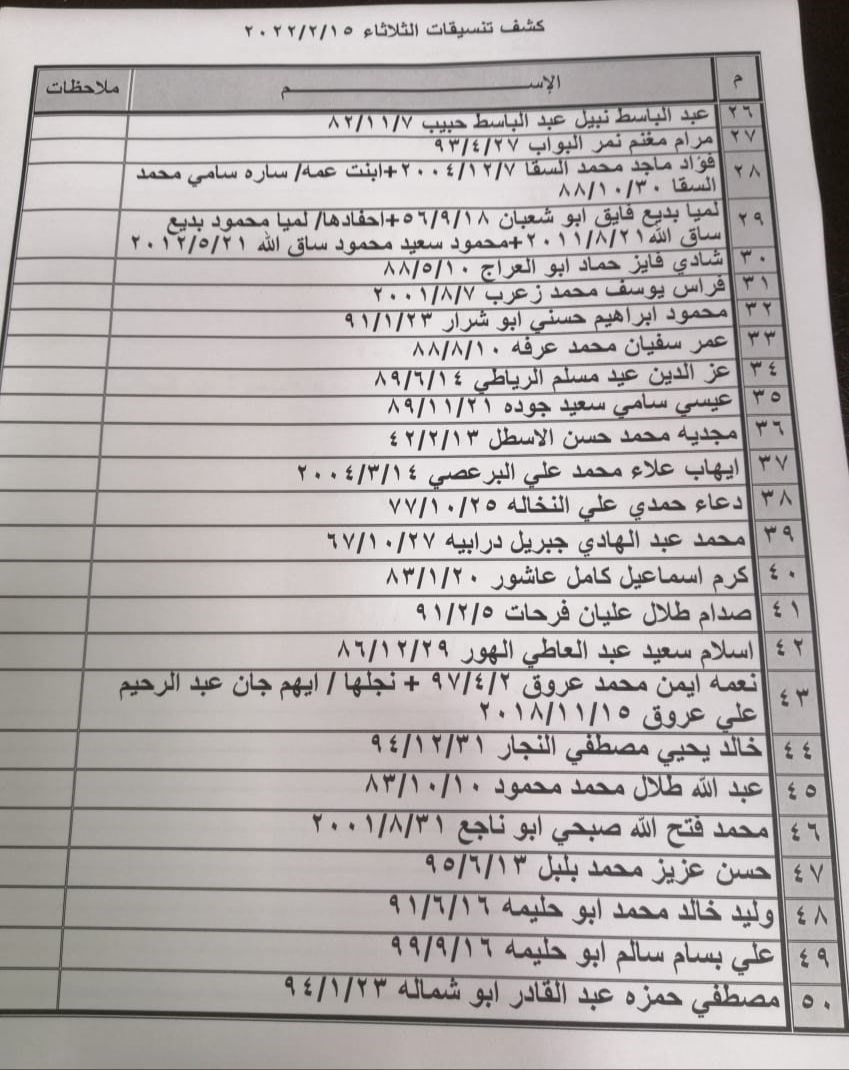 كشف تنسيقات الثلاثاء ٢٠٢٢/٢/١٥
م الإســـــــم ملاحظات
٢٦ عبد الباسط نبيل عبد الباسط حبيب ٨٢/١١/٧
٢٧ مرام مغنم نمر البواب ٩٣/٤/٢٧
٢٨ فؤاد ماجد محمد السقا ٢٠٠٤/١٢/٧+ابنت عمه/ ساره سامي محمد
السقا ٨٨/١٠/٣٠
٢٩ لميا بديع فايق ابو شعبان ٥٦/٩/١٨+احفادها/ لميا محمود بديع
ساق الله ٢٠١١/٨/٢١+محمود سعيد محمود ساق الله ٢٠١٢/٥/٢١
٣٠ شادي فايز حماد ابو العراج ٨٨/٥/١٠
٣١ فراس يوسف محمد زعرب ٢٠٠١/٨/٧
٣٢ محمود ابراهيم حسني ابو شرار ٩١/١/٢٣
٣٣ عمر سفيان محمد عرفه ٨٨/٨/١٠
٣٤ عز الدين عيد مسلم الرياطي ٨٩/٦/١٤
٣٥ عيسي سامي سعيد جوده ٨٩/١١/٢١
٣٦ مجديه محمد حسن الاسطل ٤٢/٢/١٣
٣٧ ايهاب علاء محمد علي البرعصي ٢٠٠٤/٣/١٤
٣٨ دعاء حمدي علي النخاله ٧٧/١٠/٢٥
٣٩ محمد عبد الهادي جبريل درابيه ٦٧/١٠/٢٧
٤٠ كرم اسماعيل كامل عاشور ٨٣/١/٢٠
٤١ صدام طلال عليان فرحات ٩١/٢/٥
٤٢ اسلام سعيد عبد العاطي الهور ٨٦/١٢/٢٩
٤٣ نعمه ايمن محمد عروق ٩٧/٤/٢ + نجلها / ايهم جان عبد الرحيم
علي عروق ٢٠١٨/١١/١٥
٤٤ خالد يحيي مصطفي النجار ٩٤/١٢/٣١
٤٥ عبد الله طلال محمد محمود ٨٣/١٠/١٠
٤٦ محمد فتح الله صبحي ابو ناجع ٢٠٠١/٨/٣١
٤٧ حسن عزيز محمد بلبل ٩٥/٦/١٣
٤٨ وليد خالد محمد ابو حليمه ٩١/٦/١٦
٤٩ علي بسام سالم ابو حليمه ٩٩/٩/١٦
٥٠ مصطفي حمزه عبد القادر ابو شماله ٩٤/١/٢٣